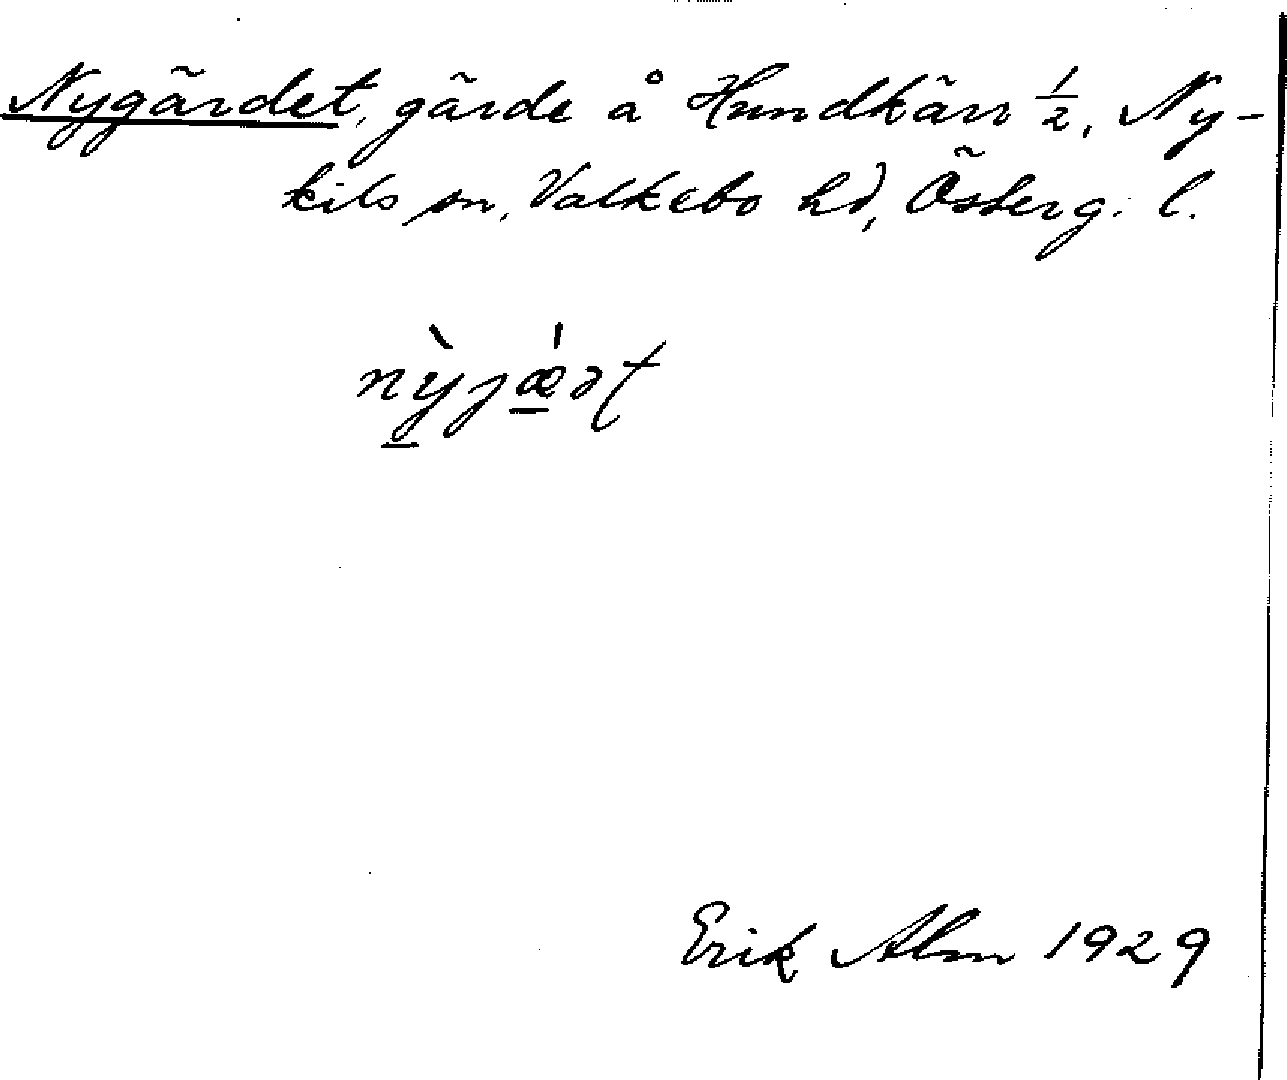 Nygärdet, gärde å Hundkärr 1/2, Ny-
kils sn, Valkebo hd, Österg. l.
nỳjǽət
Erik Alm 1929